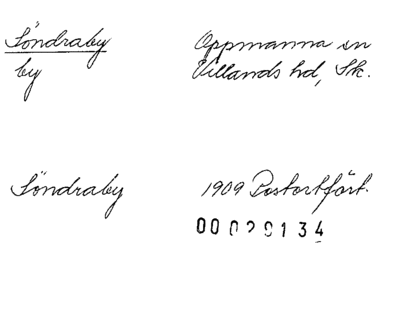 Söndraby Oppmanna sn
by Villands hd, Sk.
Söndraby 1909 Postortfört.